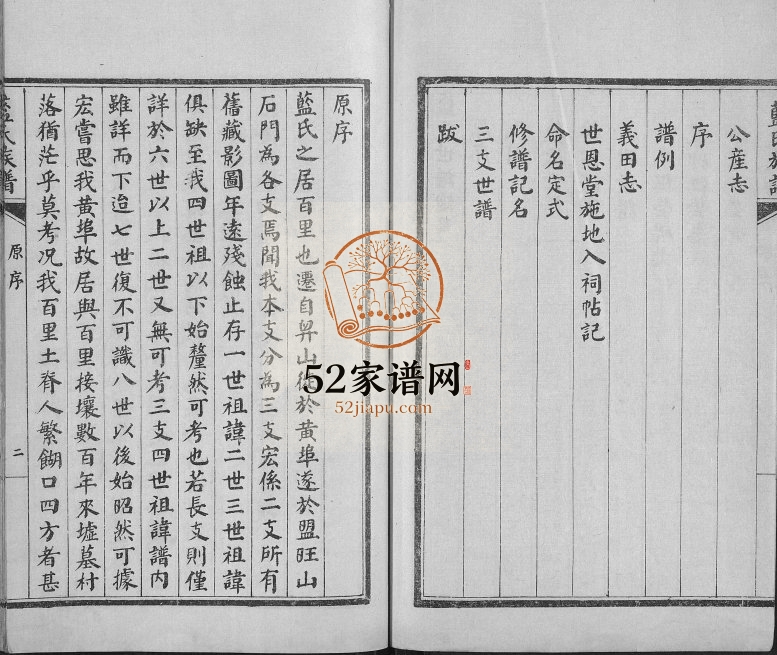 公產志
序
譜例
義田志
世恩堂施地入祠帖記
命名定式
修譜記名
三支世譜
跋
原序
藍氏之居百里也遷自舁山徙於黄埠遂於盟旺山
石門為各支焉聞我本支分為三支宏係二支所有
舊藏影圖年遠殘蝕止存一世祖諱二世三世祖諱
俱缺至我四世祖以下始釐然可考也若長支則僅
詳於六世以上二世又無可考三支四世祖諱譜内
雖詳而下迨七世復不可識八世以後始昭然可據
宏嘗思我黄埠故居與百里接壤數百年來墟墓村
落猶茫乎莫考况我百里土脊人繁餬口四方者甚
原序
二
52家谱网
52jiapu.com